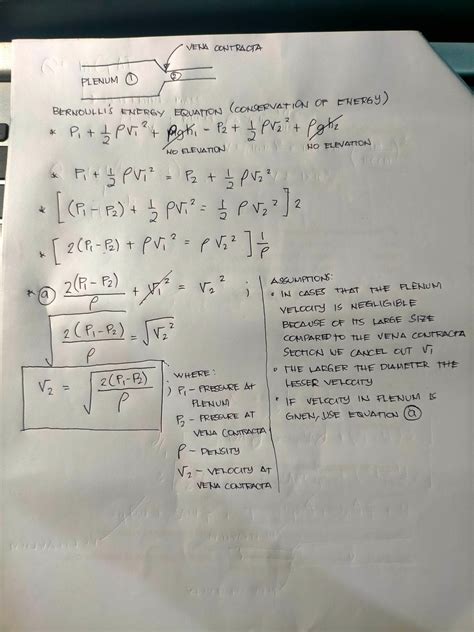 VENA CONTRACTA
PLENUM ① ②
BERNOULLI'S ENERGY EQUATION (CONSERVATION OF ENERGY)
* P₁ + 1/2 ρV₁² + ρgh₁ - P₂ + 1/2 ρV₂² + ρgh₂
NO ELEVATION NO ELEVATION
* P₁ + 1/2 ρV₁² = P₂ + 1/2 ρV₂²
* [(P₁-P₂) + 1/2 ρV₁² = 1/2 ρV₂²] 2
* [2(P₁-P₂) + ρV₁² = ρV₂²] 1/ρ
* ⓐ 2(P₁-P₂)/ρ + V₁² = V₂² ;
√(2(P₁-P₂)/ρ) = √V₂²
V₂ = √(2(P₁-P₂)/ρ) ;
WHERE:
P₁ - PRESSURE AT
PLENUM
P₂ - PRESSURE AT
VENA CONTRACTA
ρ - DENSITY
V₂ - VELOCITY AT
VENA CONTRACTA
ASSUMPTIONS:
• IN CASES THAT THE PLENUM
VELOCITY IS NEGLIGIBLE
BECAUSE OF ITS LARGE SIZE
COMPARED TO THE VENA CONTRACTA
SECTION WE CANCEL OUT V₁
• THE LARGER THE DIAMETER THE
LESSER VELOCITY
• IF VELOCITY IN PLENUM IS
GIVEN, USE EQUATION ⓐ